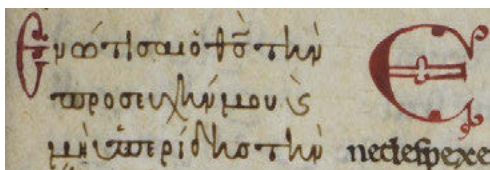 Ἐνώτισαι ὁ θς̄ τὴν
προσευχήν μου ϗ
μὴ ὑπερίδης τὴν
E
nedespexe